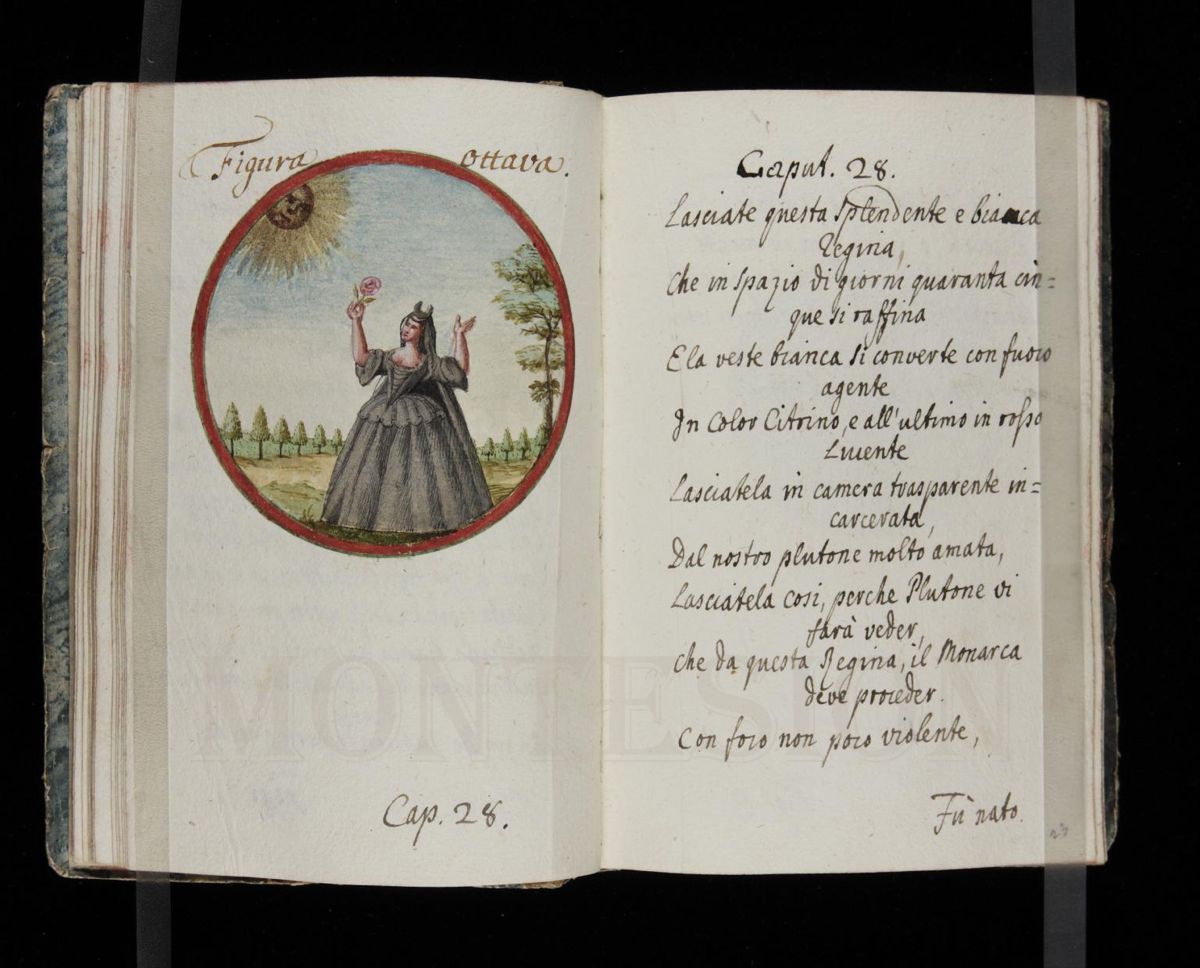 Figura ottava.
Cap. 28.
Caput. 28.
Lasciate questa splendente e bianca
Regina,
Che in spazio di giorni quaranta cin=
que si raffina
E la veste bianca si converte con fuoco
agente
In Color Citrino, e all'ultimo in rosso
Lucente
Lasciatela in camera trasparente in=
carcerata,
Dal nostro plutone molto amata,
Lasciatela cosi, perche Plutone vi
farà veder,
che da questa Regina, il Monarca
deve proceder.
Con foco non poco violente,
Fù nato.
23
MONTESION